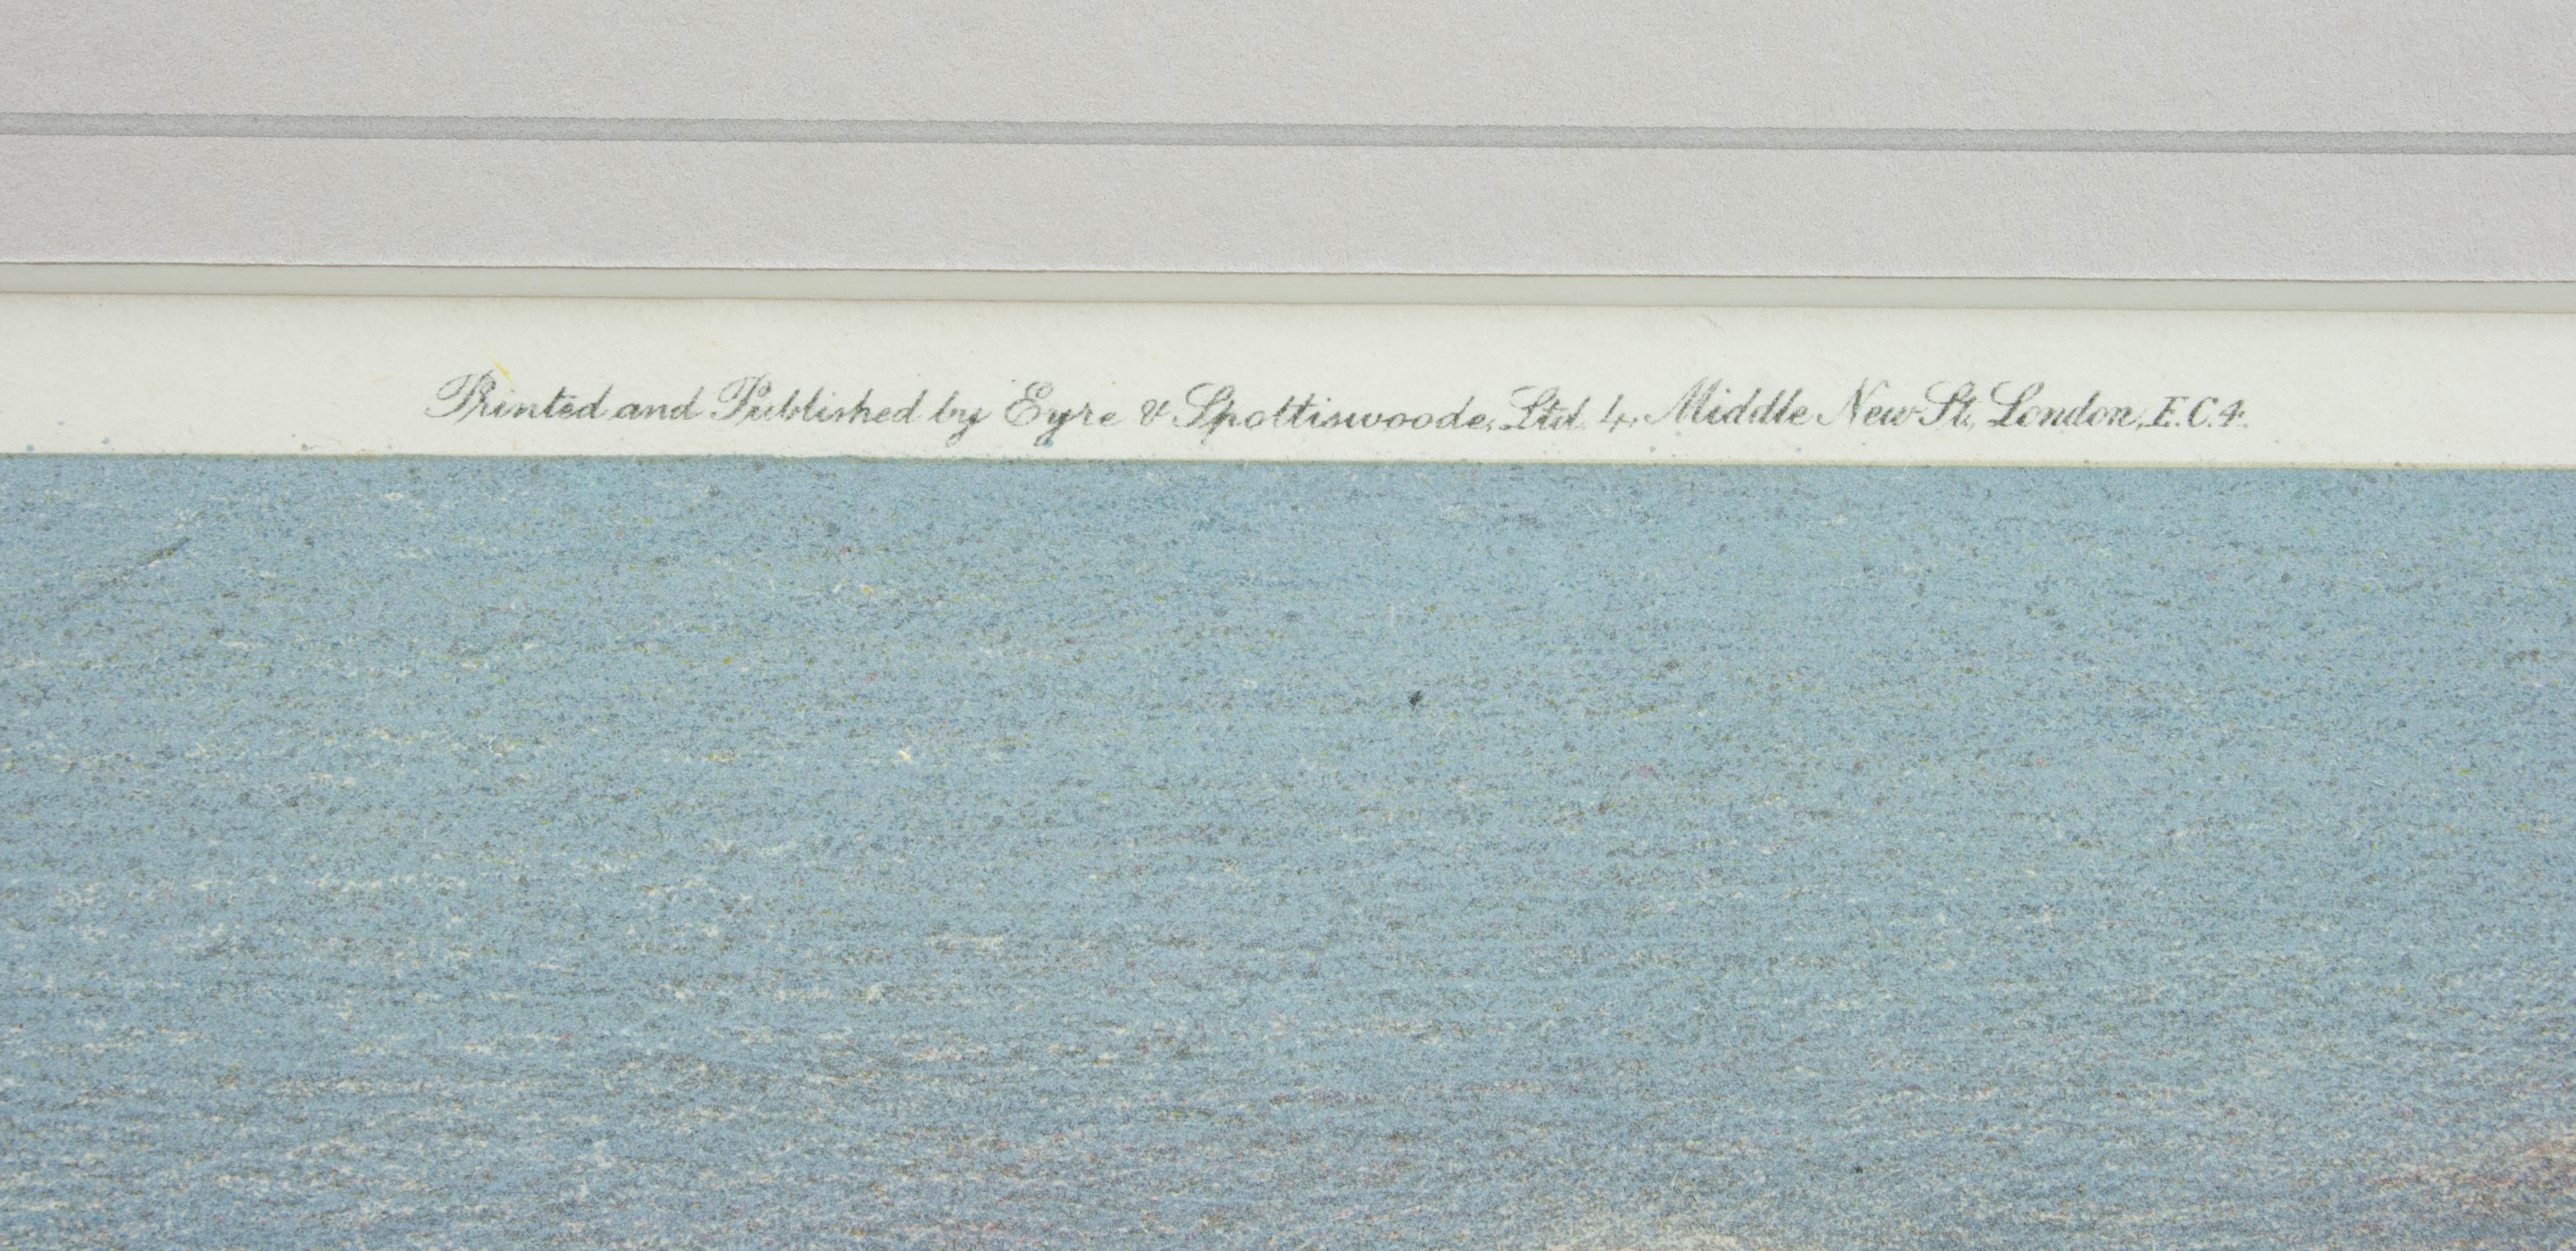 Printed and Published by Eyre & Spottiswoode, Ltd. 4, Middle New St, London, E.C.4.